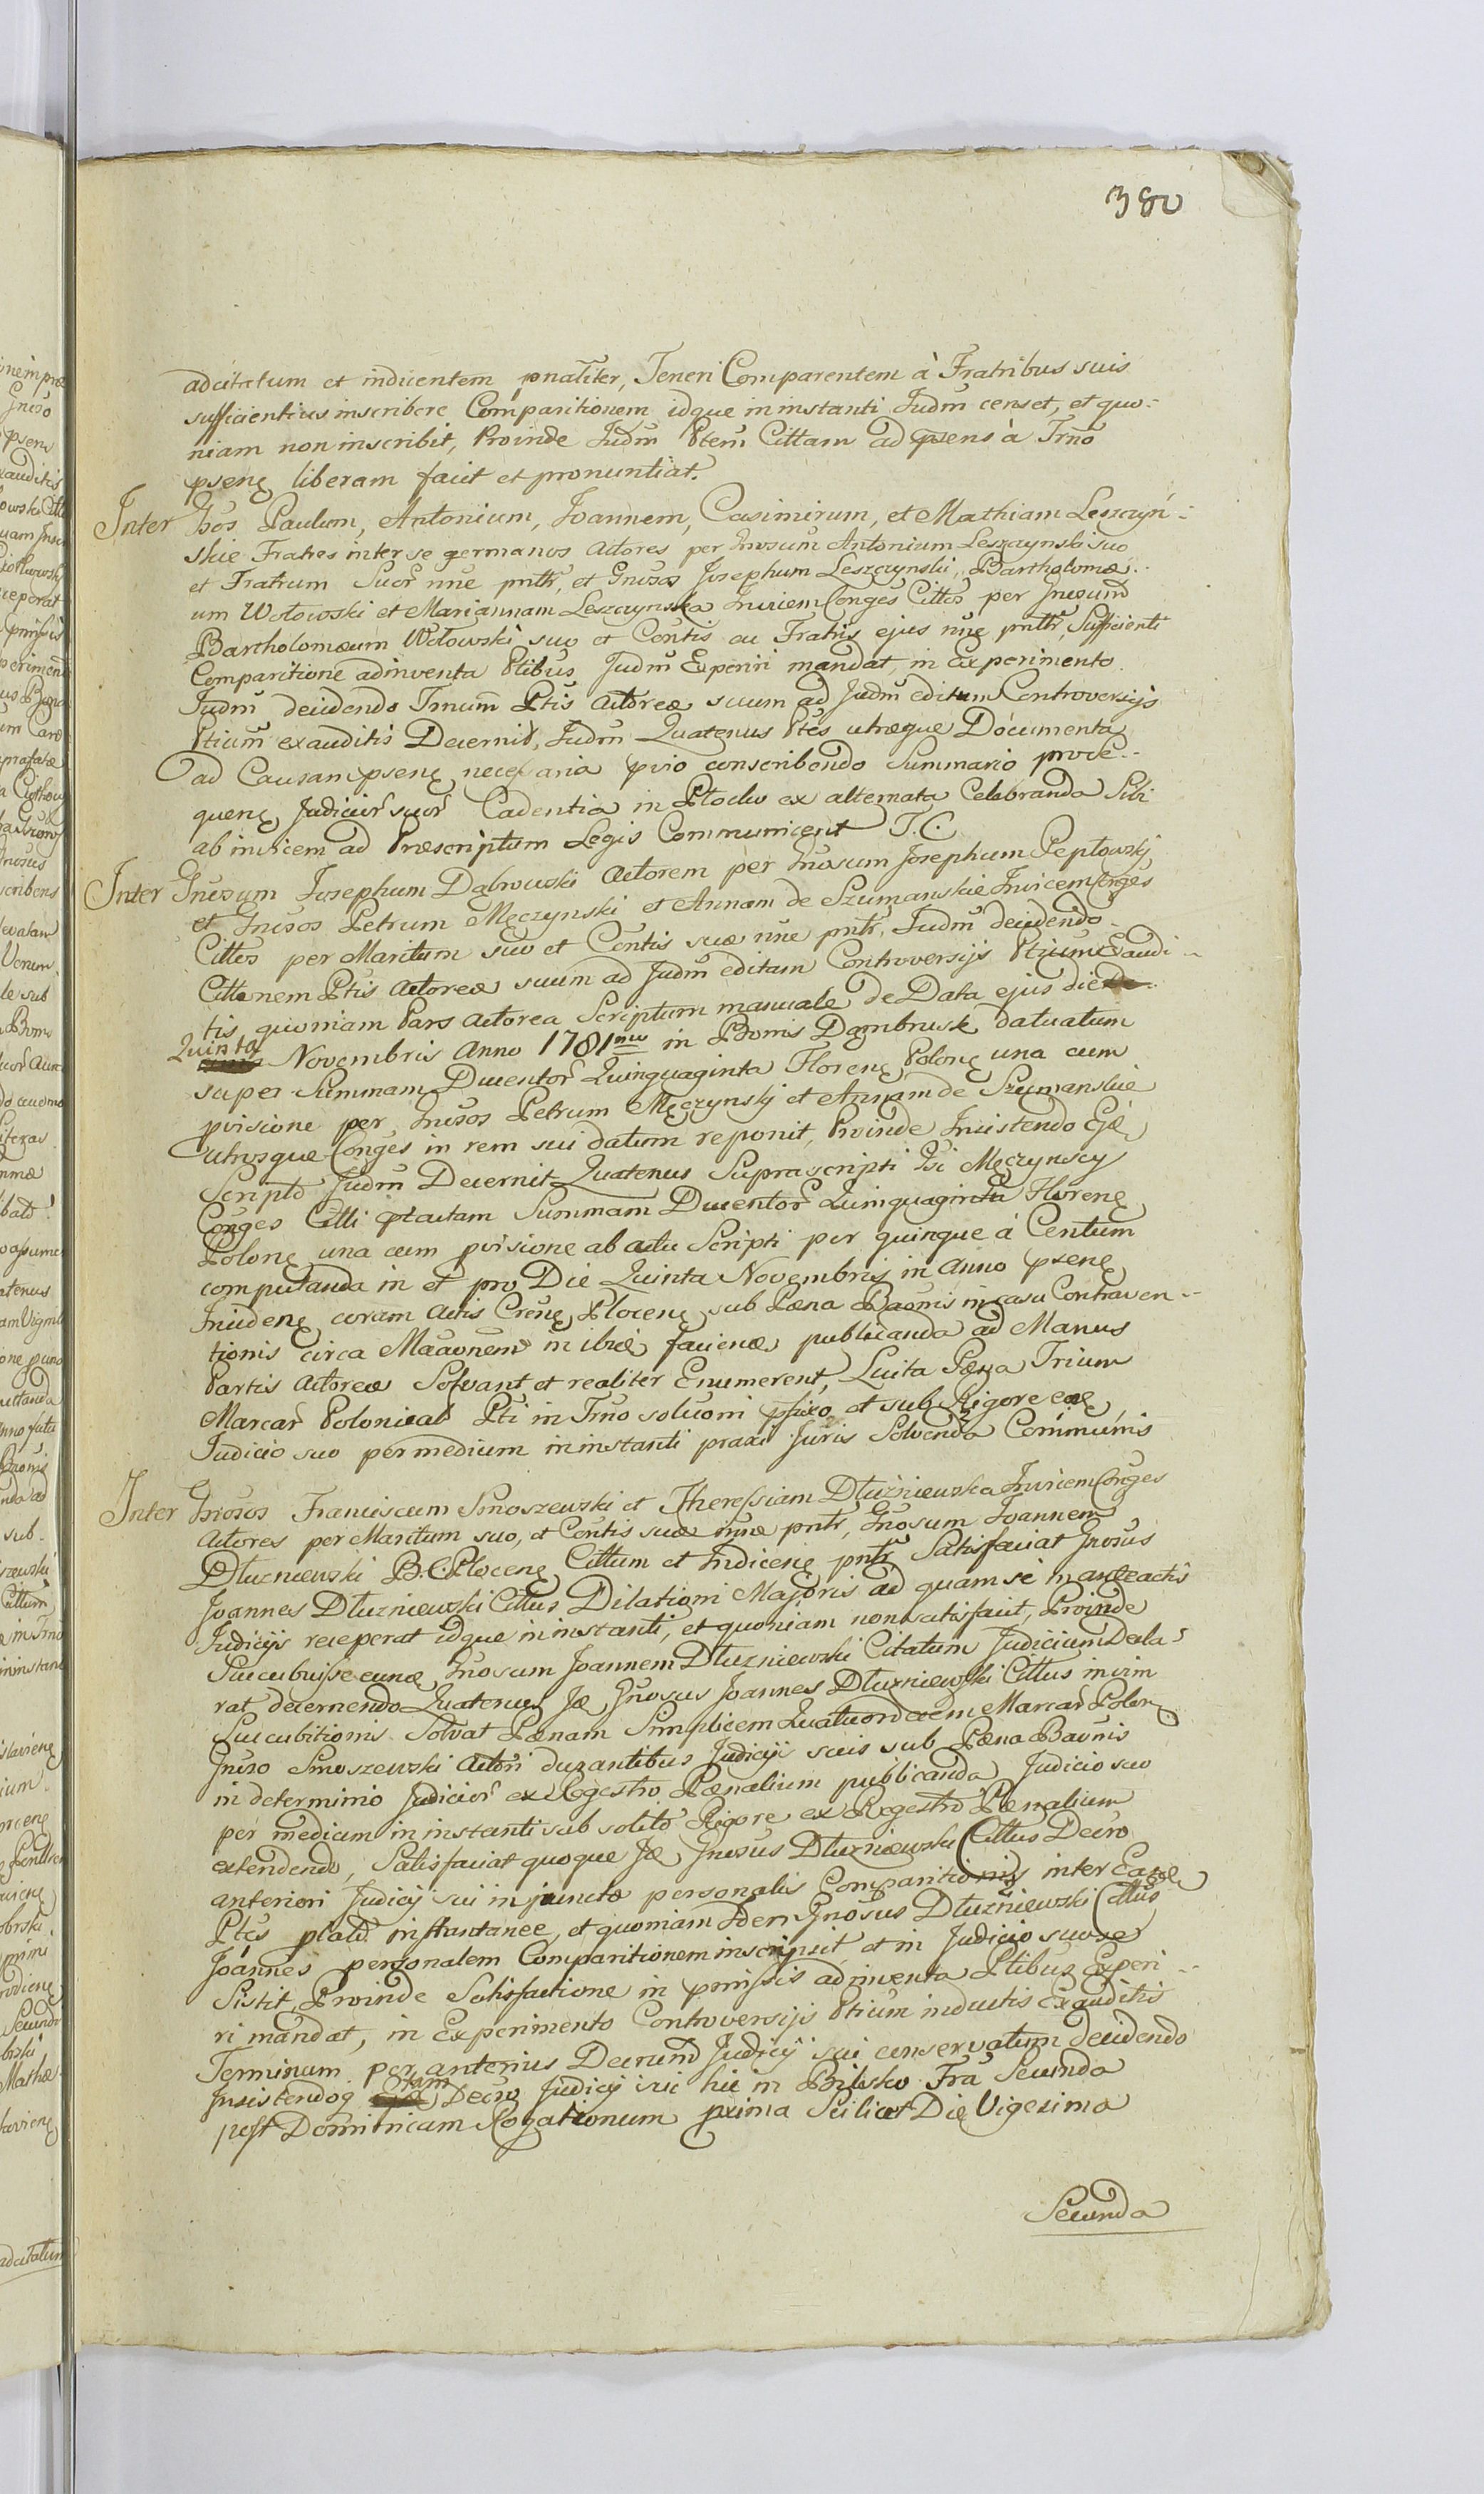 380
adcitatum et indicentem pnaliter, Teneri Comparentem à Fratribus suis
sufficientius inscribere Comparitionem idque in instanti Judm censet, et quo-
niam non inscribit, Proinde Judm Ptem Cittam ad psens à Trno
pseng liberam facit et pronuntiat.
Inter Gsos Paulum, Antonium, Joannem, Casimirum, et Mathiam Leszczyń-
skie Fratres inter se germanos Actores per Gnosum Antonium Leszczynski suo
et Fratrum Suor nne pntr, et Gnosos Josephum Leszczynski, Bartholomæ-
um Wołowski et Mariannam Leszczynska Invicem Conges Cittos per Gnosum
Bartholomæum Wołowski suo et Contis ac Fratris ejus nne pntr, Sufficienti
Comparitione adinventa Ptibus Judm Experiri mandat, in Experimento
Judm decidendo Trnum Ptis Actoreæ suum ad Judm editum Controversijs
Ptium exauditis Decernit, Judm Quatenus Ptes utræque Documenta
ad Causam pseng necessaria prio conscribendo Summario proce-
queng Judicior suor Cadentia in Plocko ex alternata Celebranda Sibi
ab invicem ad Præscriptum Legis Communicent T.C.
Inter Gnosum Josephum Dąbrowski Actorem per Gnosum Josephum Peptowskj
et Gnosos Petrum Męczynski et Annam de Szumanskie Invicem Conges
Cittos per Maritum suo et Contis suæ nne pntr, Judm decidendo
Cittonem Ptis Actoreæ suum ad Judm editam Controversijs Ptium Exaudi-
tis, quoniam Pars Actorea Scriptum manuale de Data ejus die
Quinta Novembris Anno 1781mo in Bonis Dąmbrusk datuatum
super Summam Ducentor Quinquaginta Floreng Polong una cum
prisione per Gnosos Petrum Męczynskj et Annam de Szumanskie
utrosque Conges in rem sui datum reponit, Proinde Insistendo Ejæ
Scripto Judm Decernit Quatenus Suprascripti Gsi Męczynscy
Conges Citti ptactam Summam Ducentor Quinquaginta Floreng
Polong una cum prisione ab actu Scripti per quinque à Centum
computanda in et pro Die Quinta Novembris in Anno pseng
Incideng coram Actis Creng Ploceng sub Pæna Baonis in casu Contraven-
tionis circa Maaonem in ibiæ faciende, publicanda ad Manus
Partis Actoreæ Solvant et realiter Enumerent, Luita Pæna Trium
Marcar Polonical Pti in Trno soluoni pfixo et sub Rigore eoe
Judicio suo per medium in instanti praxi Juris Solvenda Communis
Inter Gnosos Franciscum Smoszewski et Theressiam Dłużniewska Invicem Conges
Actores per Maritum suo, et Contis suæ nne pntr, Gnosum Joannem
Dłuzniewski B.C. Ploceng Cittum et Indiceng pntr Satisfaciat Gnosus
Joannes Dłuzniewski Cittus Dilationi Majoris ad quam se in anteactis
Judicijs receperat idque in instanti, et quoniam non satisfacit, Proinde
Succubuisse eunæ Gnosum Joannem Dłuzniewski Citatum Judicium Decla-
rat decernendo Quatenus Jæ Gnosus Joannes Dłuzniewski Cittus in vim
Succubitionis Solvat Pænam Simplicem Quatuordecem Marcar Polong
Gnoso Smoszewski Actori durantibus Judicijs suis sub Pæna Baonis
in determinio Judicior ex Regestro Pænalium publicanda, Judicio suo
per medium in instanti sub solito Rigore ex Regestro Pænalium
extendendo, Satisfaciat quoque Jæ Gnosus Dłuzniewski Cittus Decro
anteriori Judicij sui in juncto personalis Comparitionis inter Easde
Ptes plato instantanee, et quoniam Idem Gnosus Dłużniewski Cittus
Joannes personalem Comparitionem inscripsit et in Judicio suo se
Sistit, Proinde Satisfactione in pmissis adinventa Ptibus Experi-
ri mandat, in Experimento Controversijs Ptium inductis Exauditis
Terminum per anterius Decrum Judicij sui conservatum decidendo
Insistendoq Decro Judicij sui hic in Bilsko Fra Secunda
post Dominicam Rogationum prima Scilicet Die Vigesima
Secunda